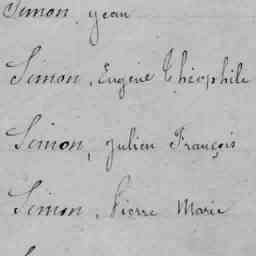 Simon, Jean
Simon, Eugène Théophile
Simon, Julien François
Simon, Pierre Marie